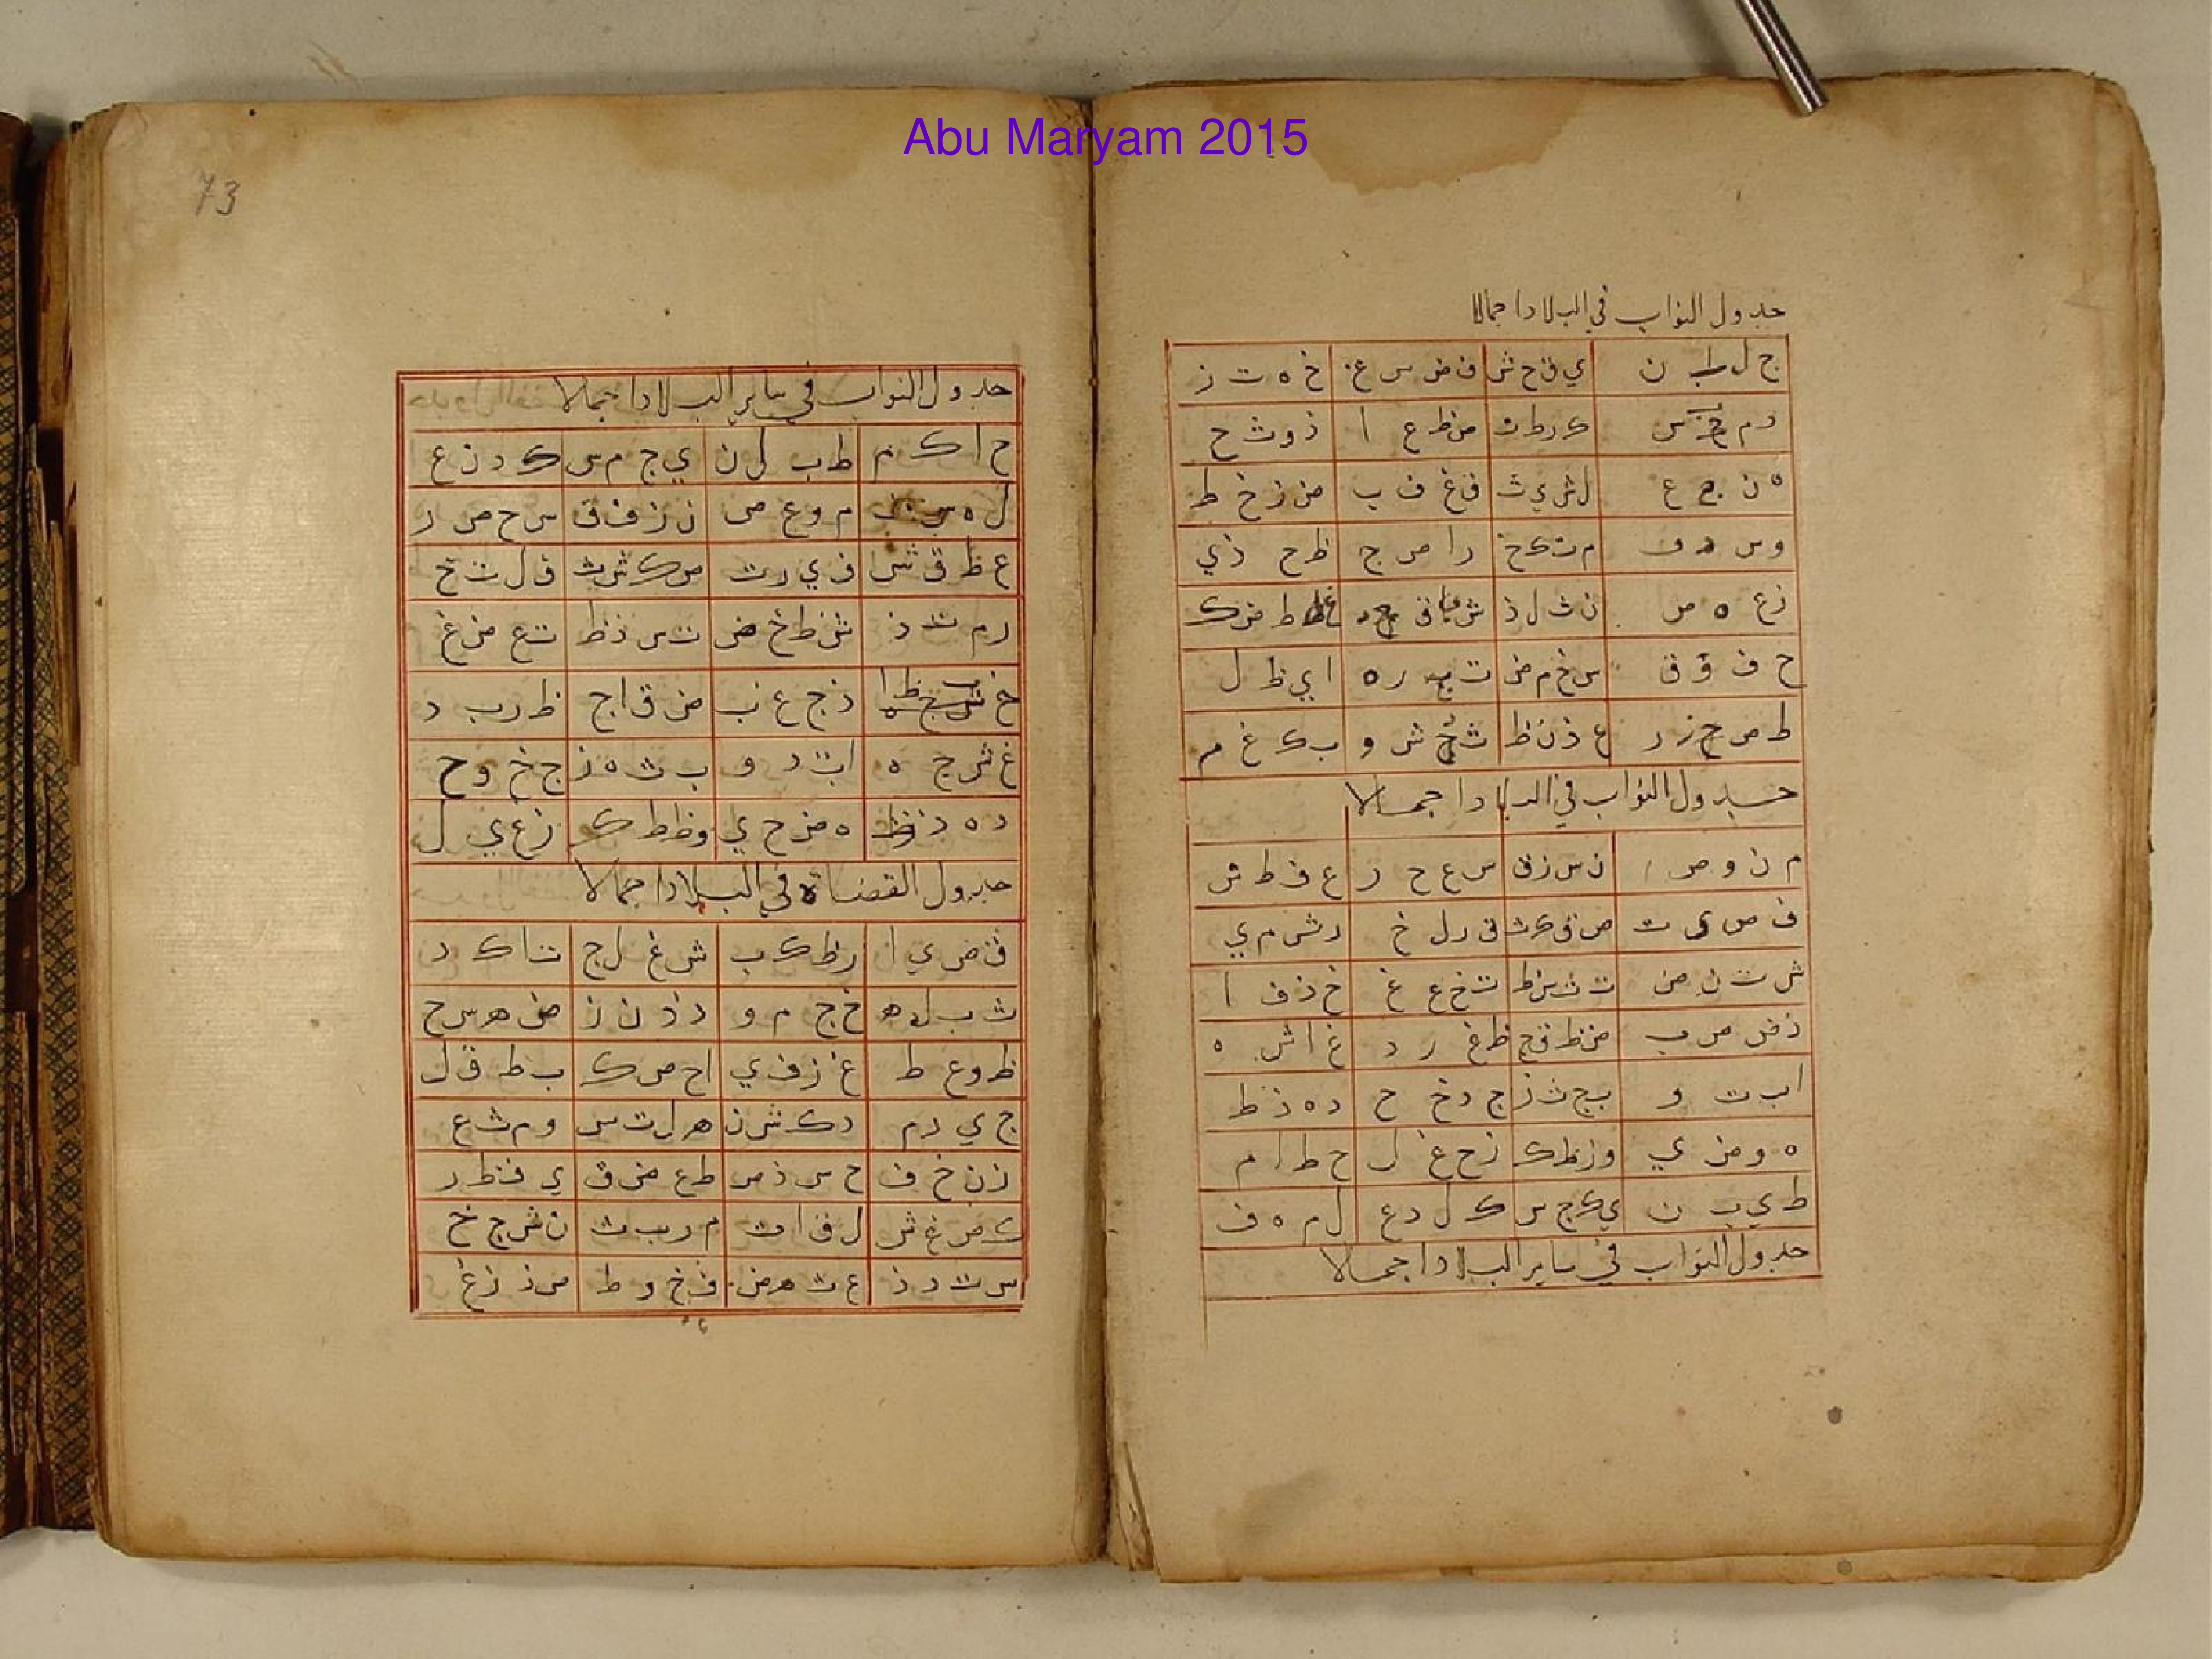 Abu Maryam 2015
جدول النواب في البلاد اجمالا
ج ل ط ن ي ق ح ش ف ض س غ خ ه ت ز
د م س ك ر ط ت ص ظ ع ا ذ و ث ح
ه ن ع ل ش ي ث ق غ ف ب ض ز خ ط
و س ف م ت ك خ ر ا ص ج ظ ح ذ ي
ز ع ه ص ن ث ل ذ ش ق ط ض ك
ح ف و ق س خ م ض ت ر ه ا ي ظ ل
ط ص ر ع ذ ن ظ ش و ب ك غ م
جدول النواب في البلاد اجمالا
م ن و ص ن س ز ق س ع ح ر ع ف ط ش
ف ص ي ت ص ق ك ث ق ر ل خ ر ش م ي
ش ت ن ض ت ث س ظ ث خ ع غ خ ذ ف ا
ذ ض ص ب ض ظ ق ج ظ غ ر د غ ا ش ه
ا ب ت و ب ج ث ز ج د خ ح د ه ذ ط
ه و ض ي و ز ظ ك ز ح غ ل ح ط ا م
ط ي ب ن ي ك ج س ك ل د ع ل م ه ف
جدول النواب في ساير البلاد اجمالا
73
جدول النواب في ساير البلاد اجمالا
ح ا ك م ط ب ل ن ي ج م س ك د ن ع
ل ه س ف م و ع ص ن ز ف ق س ح ص ر
ع ط ق ش ف ي ر ت ص ك ش ث ق ل ت خ
ر م ث ذ ش ن خ ض ت س ذ ظ ث ع ض غ
خ ظ ا ذ ج غ ب ض ق ا ج ظ ر ب د
غ ش ج ه ا ت د و ب ث ه ز ج خ و ح
د ه ذ ز ط ه ض ح ي و ظ ط ك ز غ ي ل
جدول القضاة في البلاد اجمالا
ق ض ي ا ر ظ ك ب ش غ ل ج ت ا ك د
ث ب ل ه خ ج م و ذ د ن ز ض ه س ح
ظ و ع ط غ ز ف ي ا ح ص ك ب ط ق ل
ج ي ر م د ك ش ن ه ل ت س و م ث ع
ز ن خ ف ح س ذ ص ط ع ض ق ي ف ظ ر
ك ص غ ش ل ق ا ت م ر ب ث ن ش ج خ
س ت د ذ ع ث ه ض ف خ و ظ ص ذ ز غ